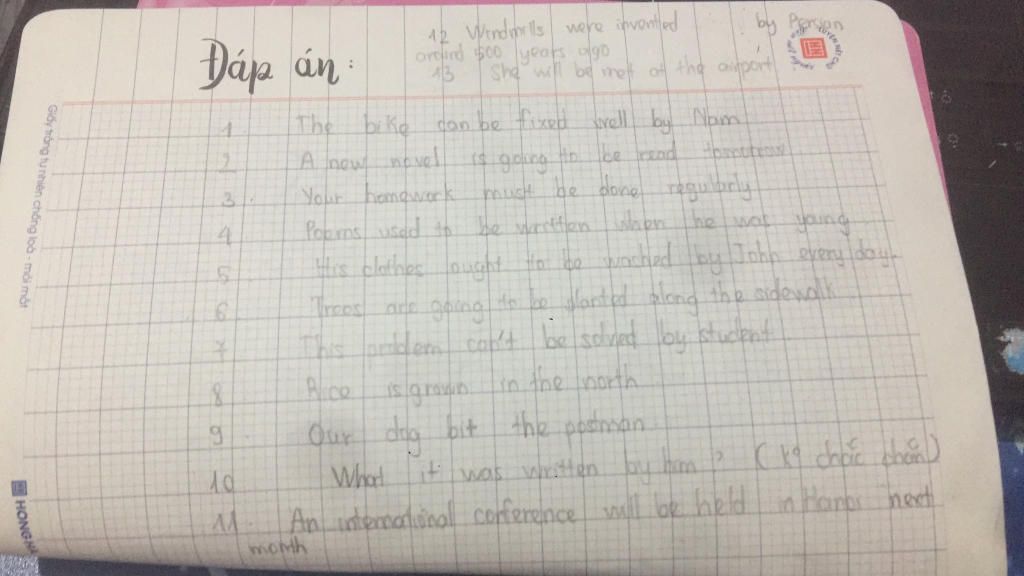 12 Windmills were invented by Persian
around 500 years ago
13 She will be met at the airport
Đáp án:
1 The bike can be fixed well by Nam
2 A new novel is going to be read tomorrow
3. Your homework must be done regularly
4 Poems used to be written when he was young
5 His clothes ought to be washed by John every day
6 Trees are going to be planted along the sidewalk
7 This problem can't be solved by student
8 Rice is grown in the north
9. Our dog bit the postman
10 What it was written by him? (k chắc chắn)
11. An international conference will be held in Hanoi next
month
HỒNG HÀ